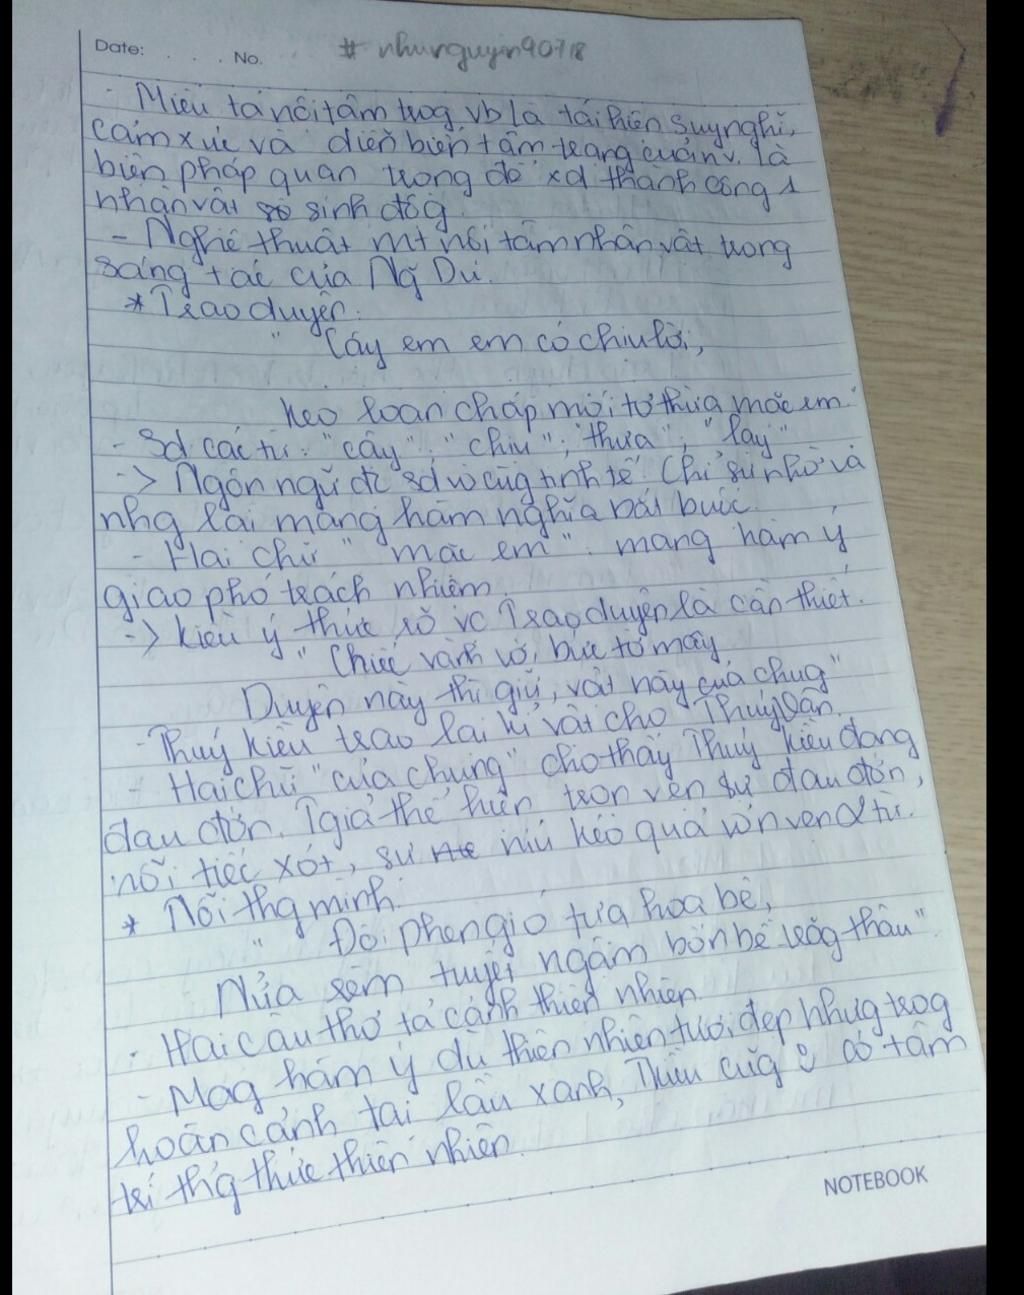 Date: . . . . No.
# nhunguyen90718
- Miêu tả nội tâm trog vb là tái hiện suy nghĩ,
cảm xúc và diễn biến tâm trạng của nv. là
biện pháp quan trọng để xd thành công 1
nhân vật sinh độg.
- Nghệ thuật mt nội tâm nhân vật trong
sáng tác của Ng Du.
* Trao duyên.
" Cậy em em có chịu lời,
Keo loan chắp mối tơ thừa mặc em"
- Sd các từ: "cậy", "chịu", "thưa", "lạy"
-> Ngôn ngữ đc sd vô cùg tinh tế. Chỉ sự nhờ vả
nhg lại mang hàm nghĩa bắt buộc.
- Hai chữ "mặc em": mang hàm ý
giao phó trách nhiệm.
-> Kiều ý thức rõ vc Trao duyên là cần thiết.
" Chiếc vành với bức tờ mây
Duyên này thì giữ, vật này của chug"
- Thuý Kiều trao lại kỉ vật cho Thuý Vân.
- Hai chữ "của chung" cho thấy Thuý Kiều đang
đau đớn. Tgiả thể hiện trọn vẹn sự đau đớn,
nỗi tiếc xót, sự níu kéo quá vốn vẹn từ.
* Nỗi thg mình.
" Đòi phen gió tựa hoa bê,
Nửa rèm tuyết ngậm bốn bề trăg thâu"
- Hai câu thơ tả cảnh thiên nhiên.
- Mag hàm ý dù thiên nhiên tươi đẹp nhưg trog
hoàn cảnh tại lầu xanh, Kiều cũg có tâm
trí thg thức thiên nhiên.
NOTEBOOK